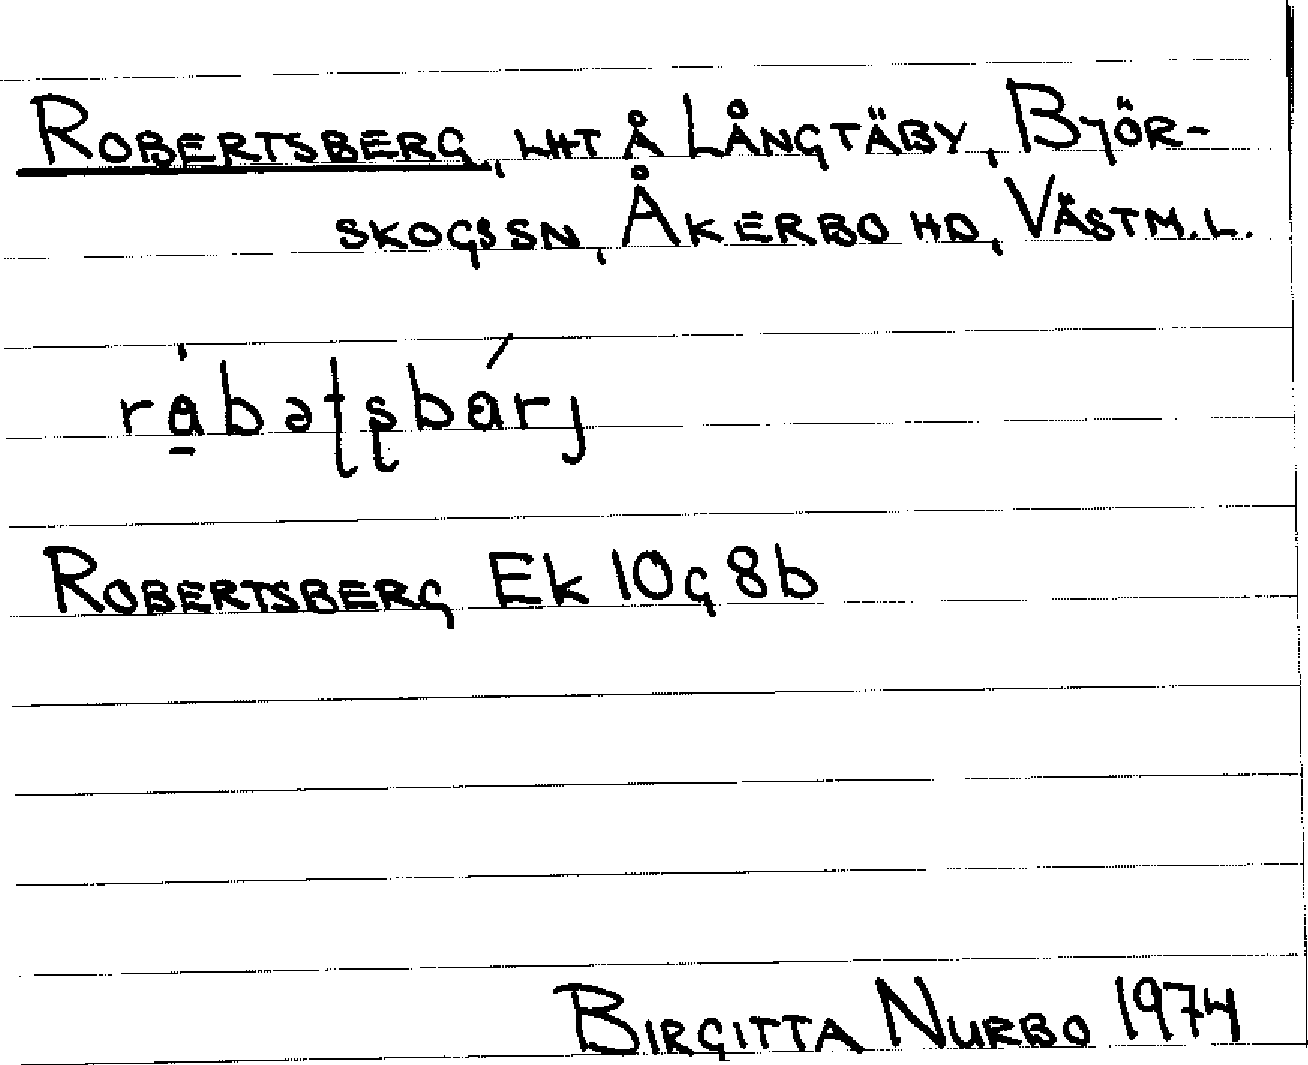 ROBERTSBERG, LHT Å LÅNGTÄBY, BJÖR-
SKOGS SN, ÅKERBO HD, VÄSTM. L.
ROBERTSBERG Ek 10G 8b
BIRGITTA NURBO 1974